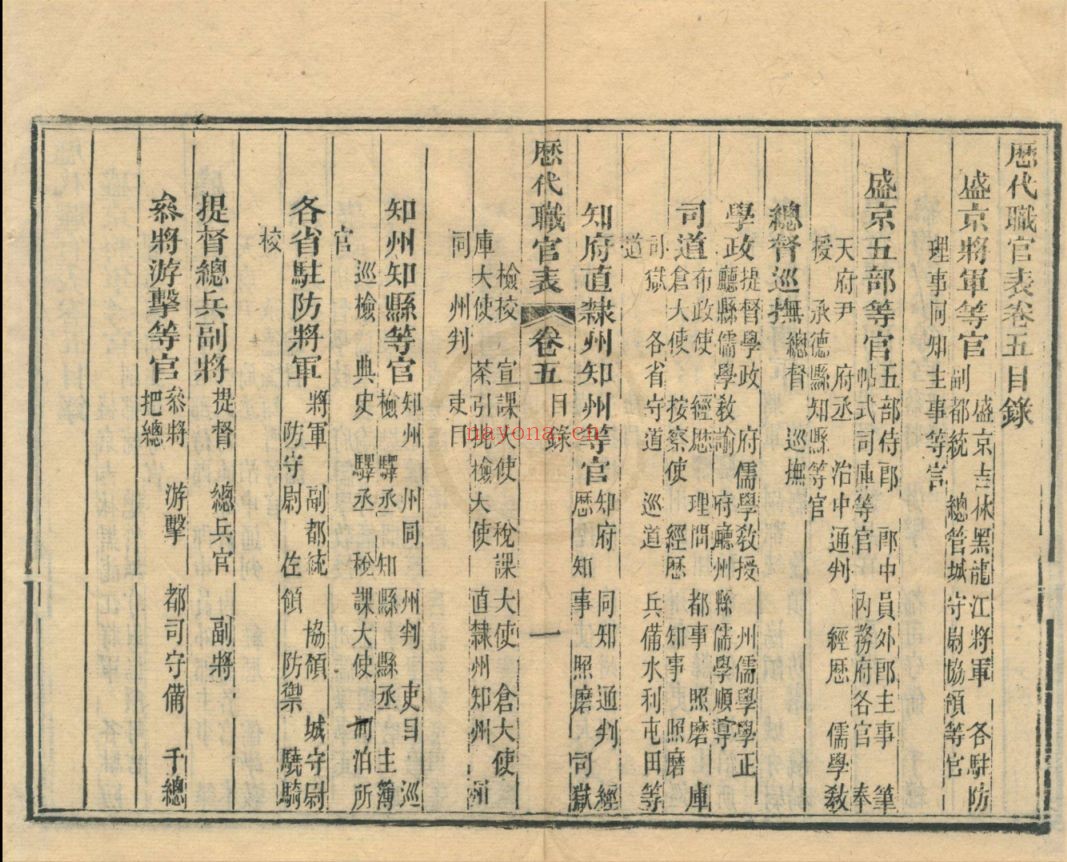 歷代職官表卷五目錄
盛京將軍等官
盛京吉林黑龍江將軍 各駐防
副都統 總管城守尉協領等官
理事同知主事等官
盛京五部等官
五部侍郎 郎中員外郎主事 筆
帖式司庫等官 內務府各官 奉
天府尹 府丞 治中通判 經歷 儒學教
授 承德縣知縣等官
總督巡撫
總督 巡撫
學政
提督學政 府儒學教授 州儒學學正
廳縣儒學教諭 府廳州縣儒學順導
司道
布政使 經歷 理問 都事 照磨 庫
倉大使 按察使 經歷 知事 照磨
司獄 各省守道 巡道 兵備水利屯田等
道
知府直隸州知州等官
知府 同知 通判 經
歷 知事 照磨 司獄
歷代職官表
卷五
目錄
一
檢校 宣課大使 稅課大使 倉大使
庫大使 茶引批檢大使 直隸州知州 州
同 州判 吏目
知州知縣等官
知州 州同 州判 吏目 巡
檢 驛丞 知縣 縣丞 主簿
巡檢 典史 驛丞 稅課大使 河泊所
官
各省駐防將軍
將軍 副都統 協領 城守尉
防守尉 佐領 防禦 驍騎
校
提督總兵副將
提督 總兵官 副將
叅將游擊等官
叅將 游擊 都司守備 千總
把總
nayona.cn